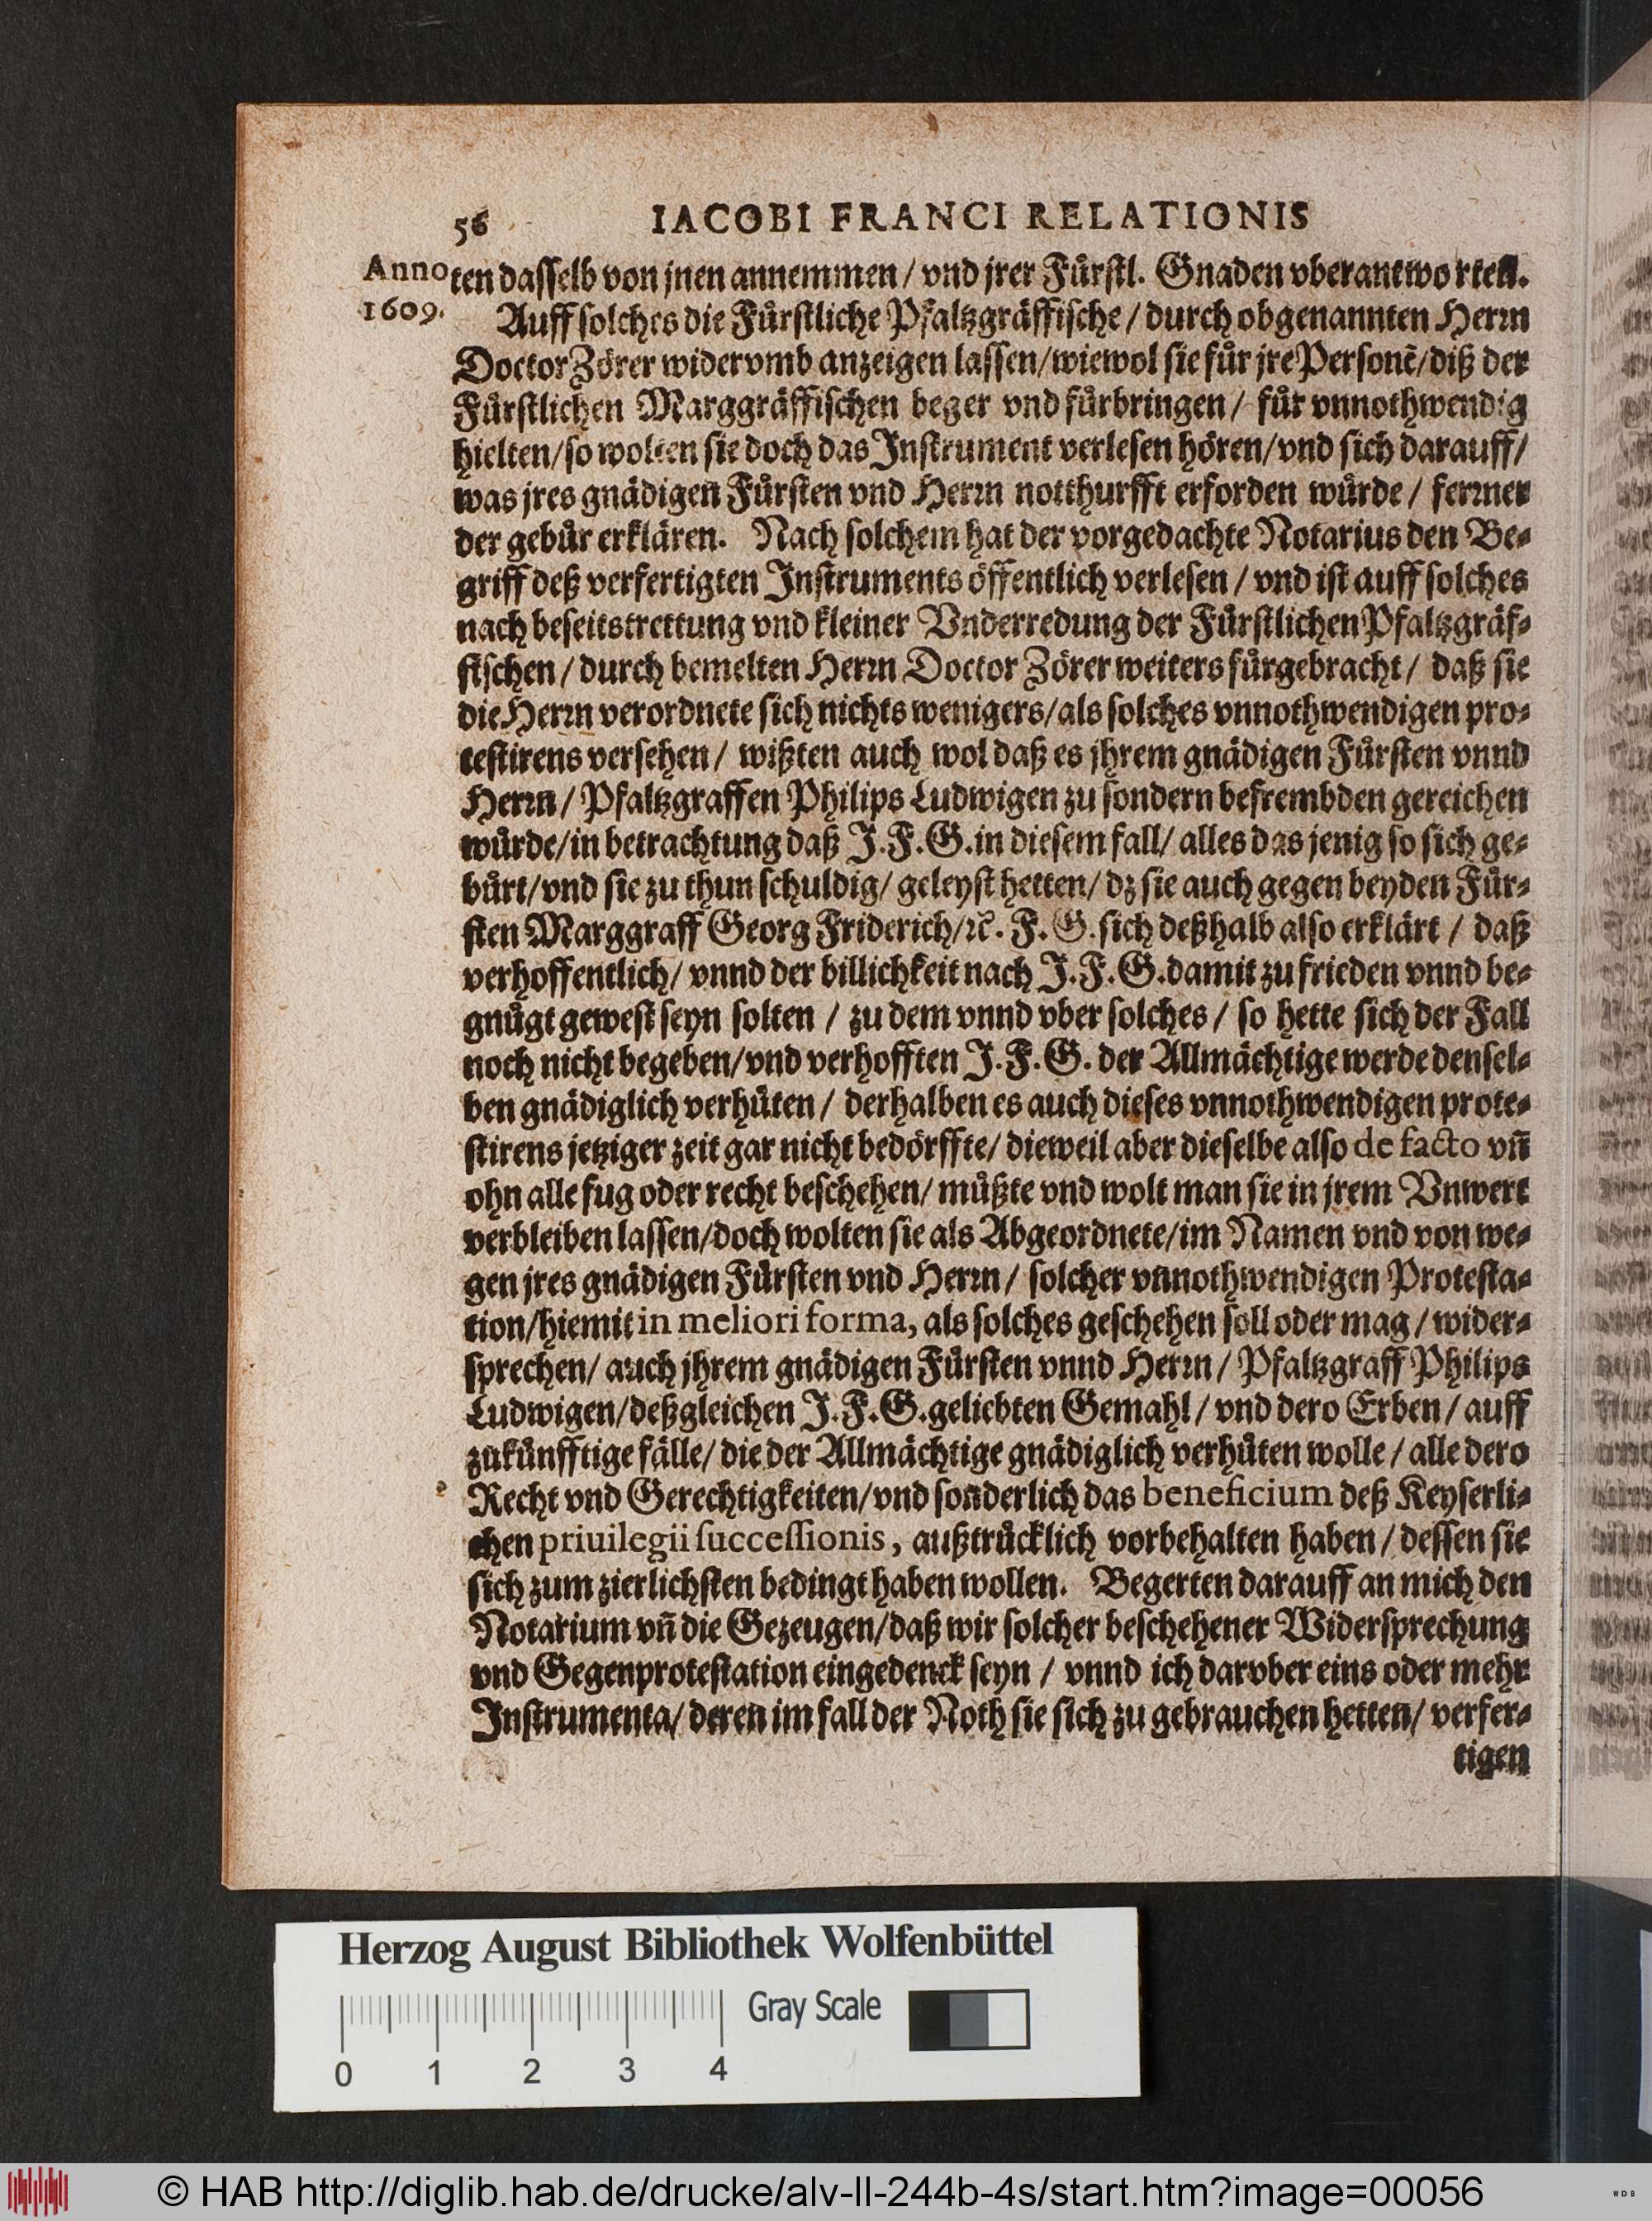 56 IACOBI FRANCI RELATIONIS
Anno
1609.
ten dasselb von jnen annemmen / vnd jrer Fuͤrstl. Gnaden vberantworten.
Auff solches die Fuͤrstliche Pfaltzgraͤffische / durch obgenannten Herꝛn
Doctor Zoͤrer widervmb anzeigen lassen / wiewol sie fuͤr jre Personẽ / diß der
Fuͤrstlichen Marggraͤffischen beger vnd fuͤrbringen / fuͤr vnnothwendig
hielten / so wolten sie doch das Instrument verlesen hoͤren / vnd sich darauff /
was jres gnaͤdigen Fuͤrsten vnd Herꝛn notthurfft erforden wuͤrde / ferꝛner
der gebuͤr erklaͤren. Nach solchem hat der vorgedachte Notarius den Be⸗
griff deß verfertigten Instruments oͤffentlich verlesen / vnd ist auff solches
nach beseitstrettung vnd kleiner Vnderredung der Fuͤrstlichen Pfaltzgraͤf⸗
fischen / durch bemelten Herꝛn Doctor Zoͤrer weiters fuͤrgebracht / daß sie
die Herꝛn verordnete sich nichts wenigers / als solches vnnothwendigen pro⸗
testirens versehen / wißten auch wol daß es jhrem gnaͤdigen Fuͤrsten vnnd
Herꝛn / Pfaltzgraffen Philips Ludwigen zu sondern befrembden gereichen
wuͤrde / in betrachtung daß J. F. G. in diesem fall / alles das jenig so sich ge⸗
buͤrt / vnd sie zu thun schuldig / geleyst hetten / dz sie auch gegen beyden Fuͤr⸗
sten Marggraff Georg Friderich / ꝛc. F. G. sich deßhalb also erklaͤrt / daß
verhoffentlich / vnnd der billichkeit nach J. F. G. damit zu frieden vnnd be⸗
gnuͤgt gewest seyn solten / zu dem vnnd vber solches / so hette sich der Fall
noch nicht begeben / vnd verhofften J. F. G. der Allmaͤchtige werde densel⸗
ben gnaͤdiglich verhuͤten / derhalben es auch dieses vnnothwendigen prote⸗
stirens jetziger zeit gar nicht bedoͤrffte / dieweil aber dieselbe also de facto vñ
ohn alle fug oder recht beschehen / muͤßte vnd wolt man sie in jrem Vnwert
verbleiben lassen / doch wolten sie als Abgeordnete / im Namen vnd von we⸗
gen jres gnaͤdigen Fuͤrsten vnd Herꝛn / solcher vnnothwendigen Protesta⸗
tion / hiemit in meliori forma, als solches geschehen soll oder mag / wider⸗
sprechen / auch jhrem gnaͤdigen Fuͤrsten vnnd Herꝛn / Pfaltzgraff Philips
Ludwigen / deßgleichen J. F. G. geliebten Gemahl / vnd dero Erben / auff
zukuͤnfftige faͤlle / die der Allmaͤchtige gnaͤdiglich verhuͤten wolle / alle dero
Recht vnd Gerechtigkeiten / vnd sonderlich das beneficium deß Keyserli⸗
chen priuilegii successionis, außtruͤcklich vorbehalten haben / dessen sie
sich zum zierlichsten bedingt haben wollen. Begerten darauff an mich den
Notarium vñ die Gezeugen / daß wir solcher beschehener Widersprechung
vnd Gegenprotestation eingedenck seyn / vnnd ich darvber eins oder mehr
Instrumenta / deren im fall der Noth sie sich zu gebrauchen hetten / verfer⸗
tigen
Herzog August Bibliothek Wolfenbüttel
Gray Scale
0 1 2 3 4
© HAB http://diglib.hab.de/drucke/alv-ll-244b-4s/start.htm?image=00056
W D B